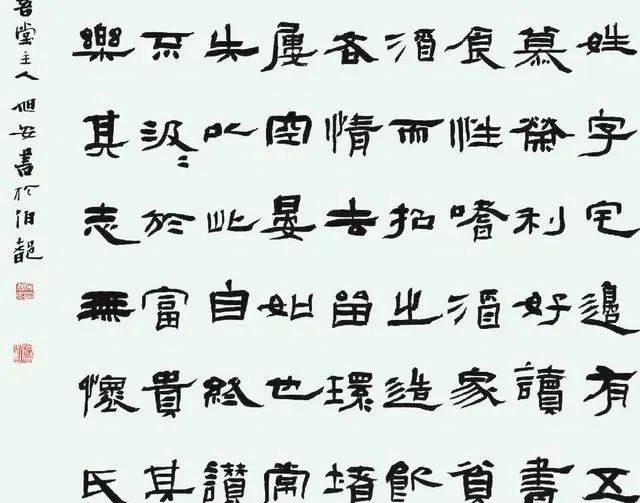 姓字宅邊有五
慕榮利好讀書
食性嗜酒家貧
酒而招之造飲
吝情去留環堵
屢空晏如也常
失以此自終讚
不汲汲於富貴其
樂其志無懷氏
堂主人書於